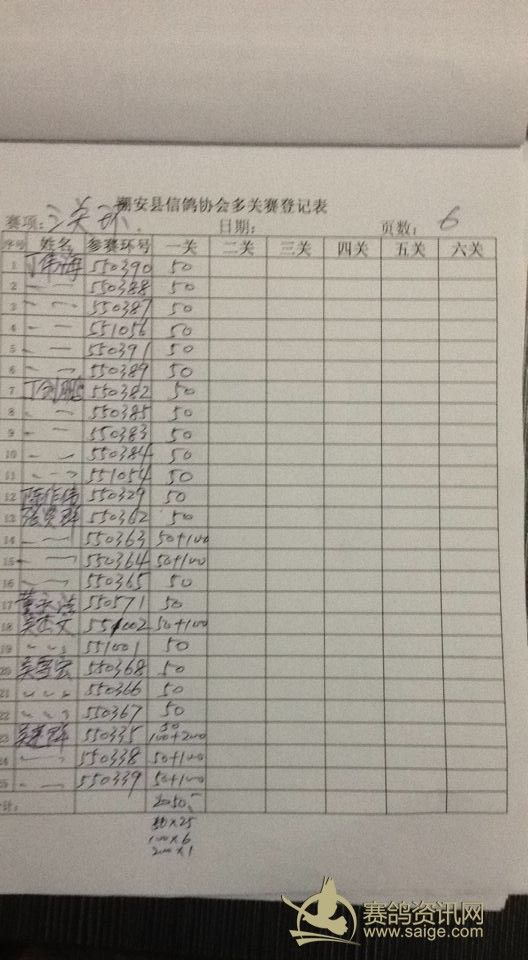 潮安县信鸽协会多关赛登记表
赛项: 三关环. 日期: 页数: 6
序号 姓名 参赛环号 一关 二关 三关 四关 五关 六关
1 丁伟海 550390 50
2 〃 〃 550388 50
3 〃 〃 550387 50
4 〃 〃 551056 50
5 〃 〃 550391 50
6 〃 〃 550389 50
7 丁剑鹏 550382 50
8 〃 〃 550385 50
9 〃 〃 550383 50
10 〃 〃 550384 50
11 〃 〃 551054 50
12 陈作伟 550329 50
13 550362 50
14 〃 〃 550363 50+100
15 〃 〃 550364 50+100
16 〃 〃 550365 50
17 550571 50
18 551002 50+100
19 〃 〃 551001 50
20 550368 50
21 〃 〃 〃 550366 50
22 〃 〃 〃 550367 50
23 550335 50 100+200
24 〃 〃 550338 50+100
25 〃 〃 550339 50+100
计: 2050.-
50×25
100×6
200×1
赛鸽资讯网
www.saige.com